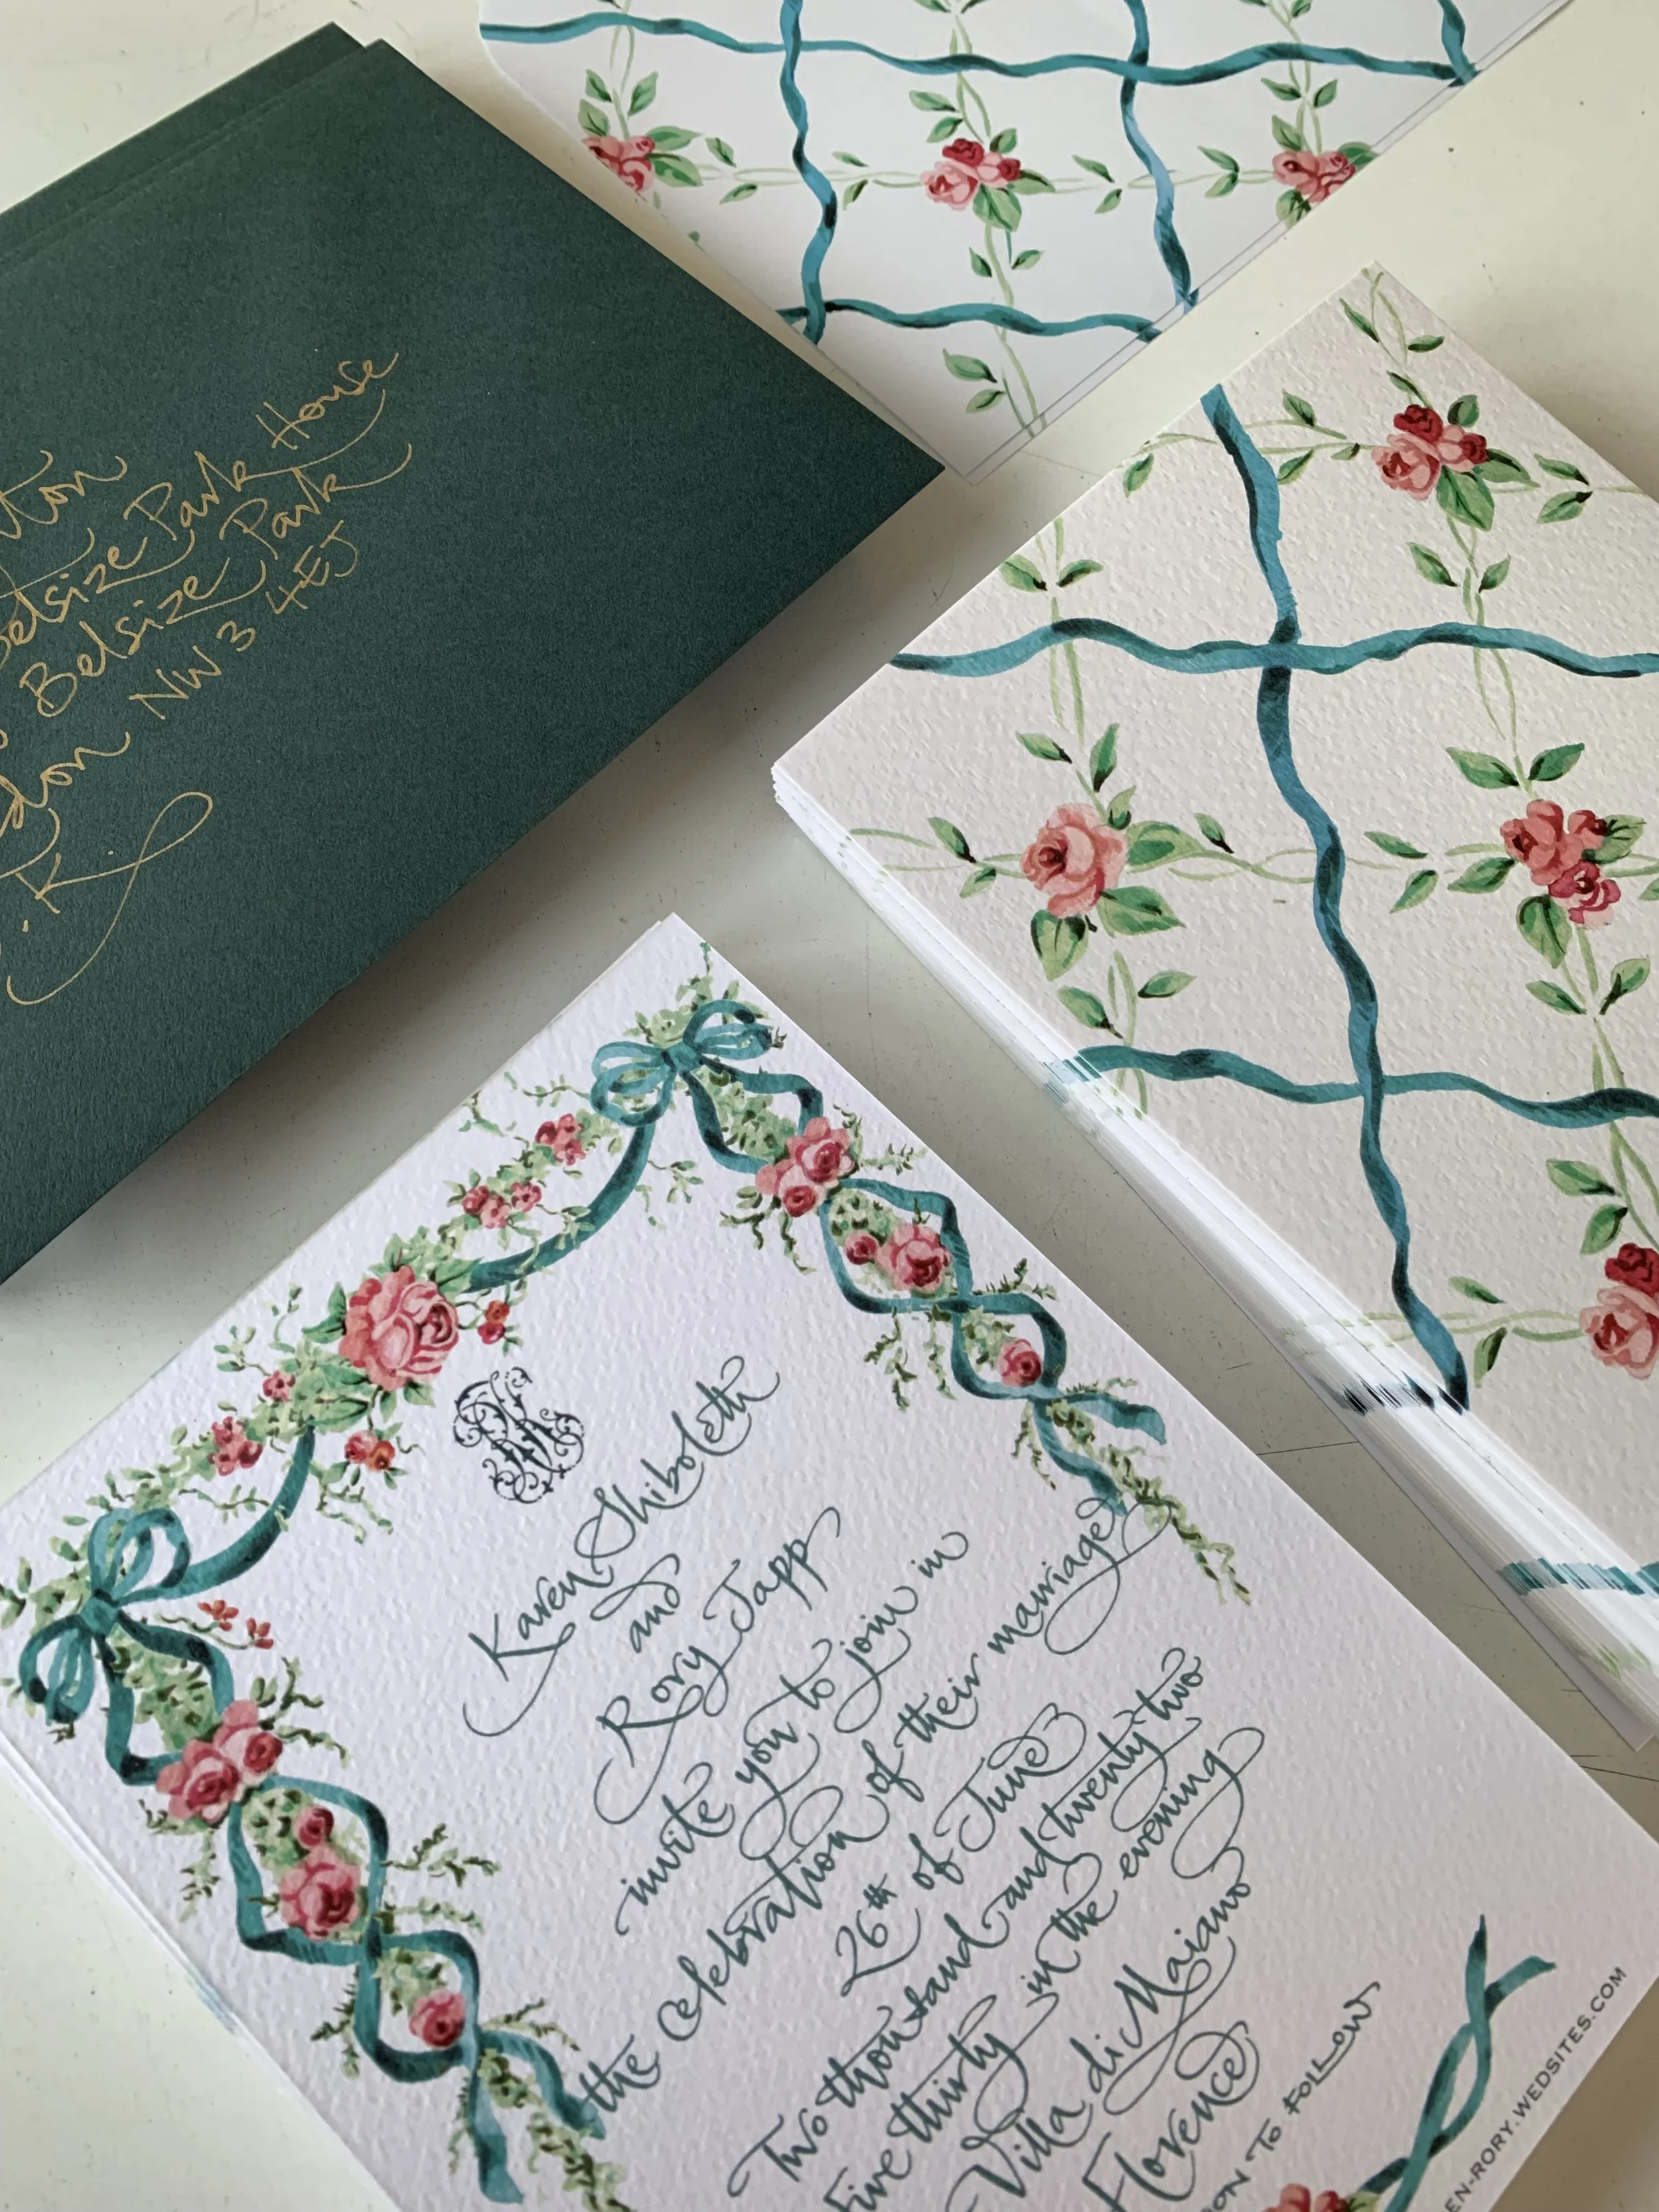 Belsize Park House
Belsize Park
NW3 4EJ
Karen Shiboleth
and
Rory Tapp
invite you to join in
the celebration of their marriage
26th of June
Two thousand and twenty two
Five thirty in the evening
Villa di Maiano
Florence
TO FOLLOW
EN-RORY.WEDSITES.COM